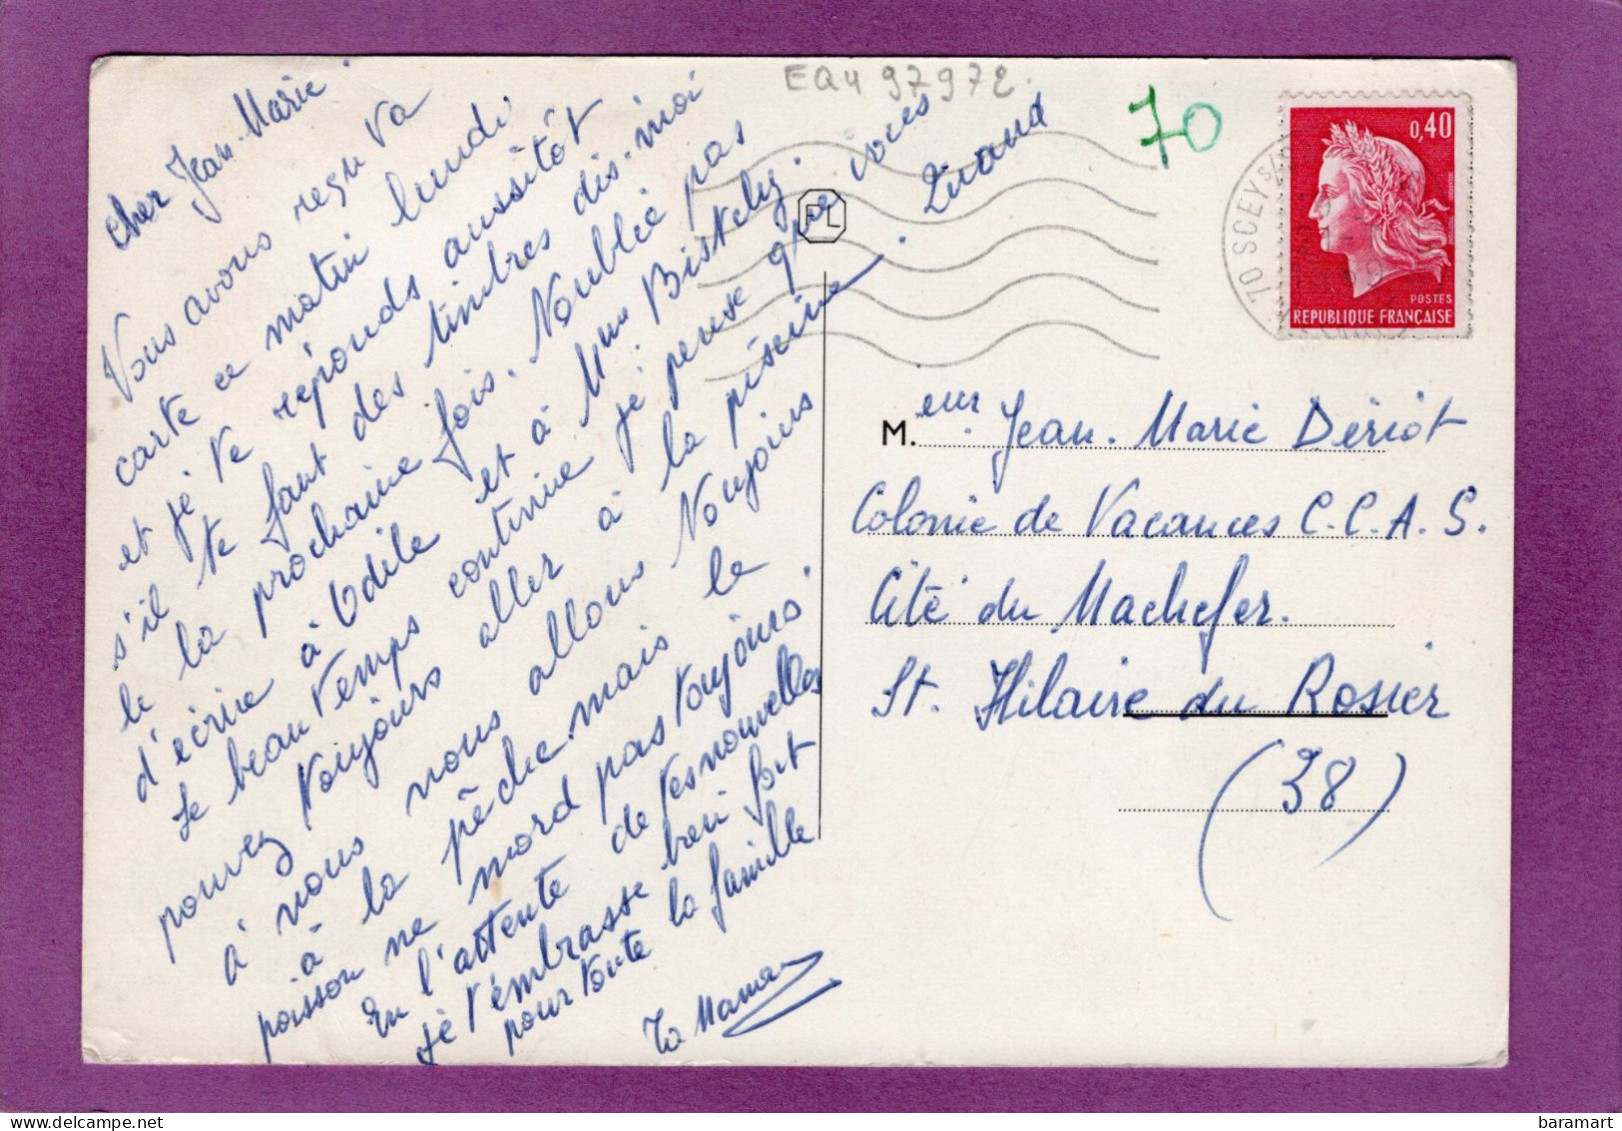 EQ4 97972
70
Cher Jean-Marie
Nous avons reçu ta
carte ce matin lundi
et je te réponds aussitôt
s'il te faut des timbres dis-moi
le la prochaine fois. N'oublie pas
d'écrire à Odile et à Mme
le beau temps continue je pense que vous
pouvez toujours aller à la piscine. Quand
à nous nous allons toujours
à la pêche mais le
poisson ne mord pas toujours.
En l'attente de tes nouvelles
je t'embrasse bien fort
pour toute la famille
Ta Maman
FL
70 SCEY S/
0,40
POSTES
REPUBLIQUE FRANÇAISE
M.eur Jean-Marie Dériot
Colonie de Vacances C.C.A.S.
Cité du Machefer.
St. Hilaire du Rosier
(38)
baramart